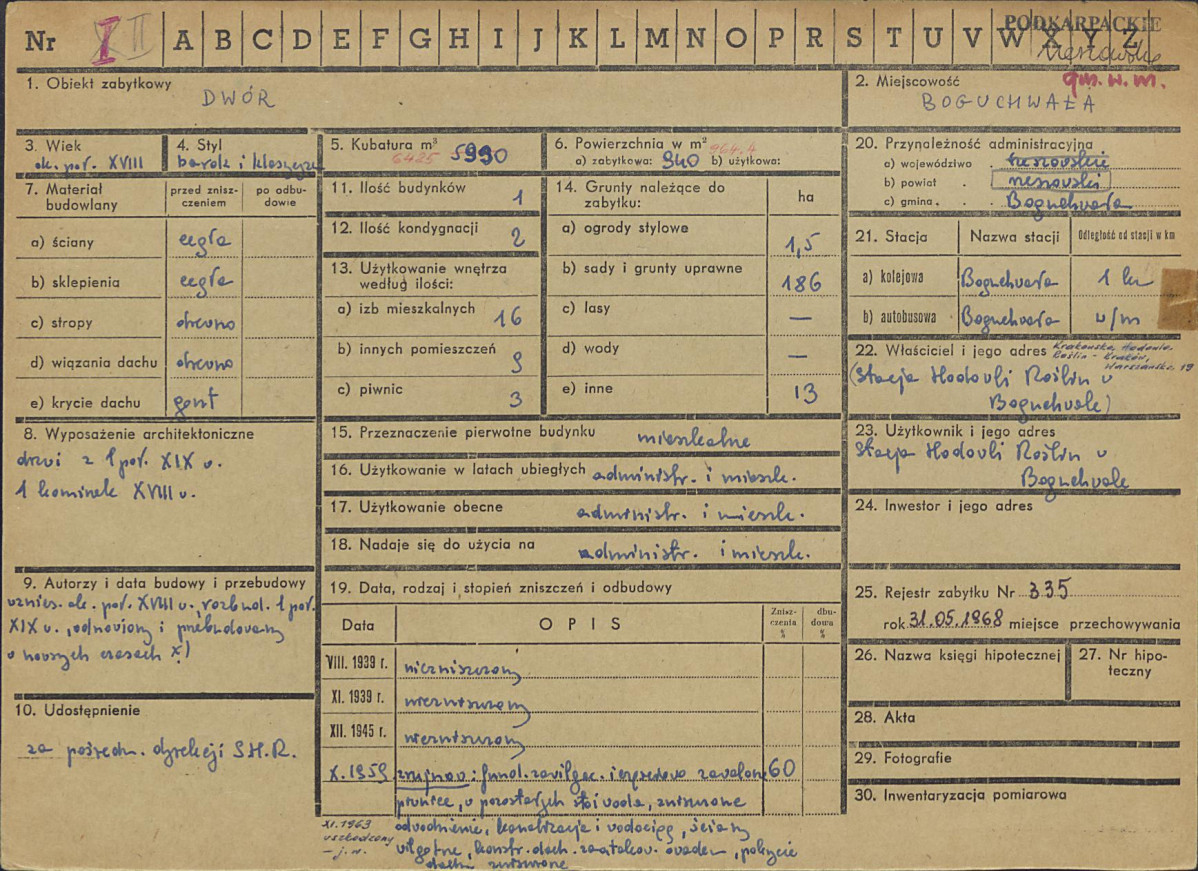 Nr I II A B C D E F G H I J K L M N O P R S T U V W X Y Z
PODKARPACKIE
gm. w. m.
1. Obiekt zabytkowy
DWÓR
2. Miejscowość
BOGUCHWAŁA
3. Wiek
ok. poł. XVIII
4. Styl
barok i klasycyzm
5. Kubatura m³
6425 5990
6. Powierzchnia w m² 964.4
a) zabytkowa: 940 b) użytkowa:
7. Materiał budowlany
przed znisz-
czeniem
po odbu-
dowie
a) ściany cegła
b) sklepienia cegła
c) stropy drewno
d) wiązania dachu drewno
e) krycie dachu gont
8. Wyposażenie architektoniczne
drzwi z 1 poł. XIX w.
1 kominek XVIII w.
9. Autorzy i data budowy i przebudowy
wznies. ok. poł. XVIII w., rozbud. 1 poł.
XIX w., odnowiony i przebudowany
w nowszych czasach x)
10. Udostępnienie
za pośredn. dyrekcji S.H.R.
11. Ilość budynków 1
12. Ilość kondygnacji 2
13. Użytkowanie wnętrza
według ilości:
a) izb mieszkalnych 16
b) innych pomieszczeń 9
c) piwnic 3
14. Grunty należące do
zabytku: ha
a) ogrody stylowe 1,5
b) sady i grunty uprawne 186
c) lasy —
d) wody —
e) inne 13
15. Przeznaczenie pierwotne budynku mieszkalne
16. Użytkowanie w latach ubiegłych administr. i mieszk.
17. Użytkowanie obecne administr. i mieszk.
18. Nadaje się do użycia na administr. i mieszk.
19. Data, rodzaj i stopień zniszczeń i odbudowy
Data OPIS
Znisz-
czenia
%
dbu-
dowa
%
VIII. 1939 r. niezniszczony
XI. 1939 r. niezniszczony
XII. 1945 r. niezniszczony
X. 1959 fund. zawilgoc. i częściowo zawalone 60
piwnice, w pozostałych stoi woda, zniszczone
odwodnienie, kanalizacja i wodociąg, ściany
wilgotne, konstr. dach. zaatakow. owadem, pokrycie
dachu zniszczone
XI. 1963
uszkodzony
– j. w.
20. Przynależność administracyjna
a) województwo rzeszowskie
b) powiat rzeszowski
c) gmina Boguchwała
21. Stacja Nazwa stacji Odległość od stacji w km
a) kolejowa Boguchwała 1 km
b) autobusowa Boguchwała w/m
22. Właściciel i jego adres Krakowska Hodowla
Roślin - Kraków,
Warszawska 19
(Stacja Hodowli Roślin w
Boguchwale)
23. Użytkownik i jego adres
Stacja Hodowli Roślin w
Boguchwale
24. Inwestor i jego adres
25. Rejestr zabytku Nr 335
rok 31.05.1968 miejsce przechowywania
26. Nazwa księgi hipotecznej
27. Nr hipo-
teczny
28. Akta
29. Fotografie
30. Inwentaryzacja pomiarowa